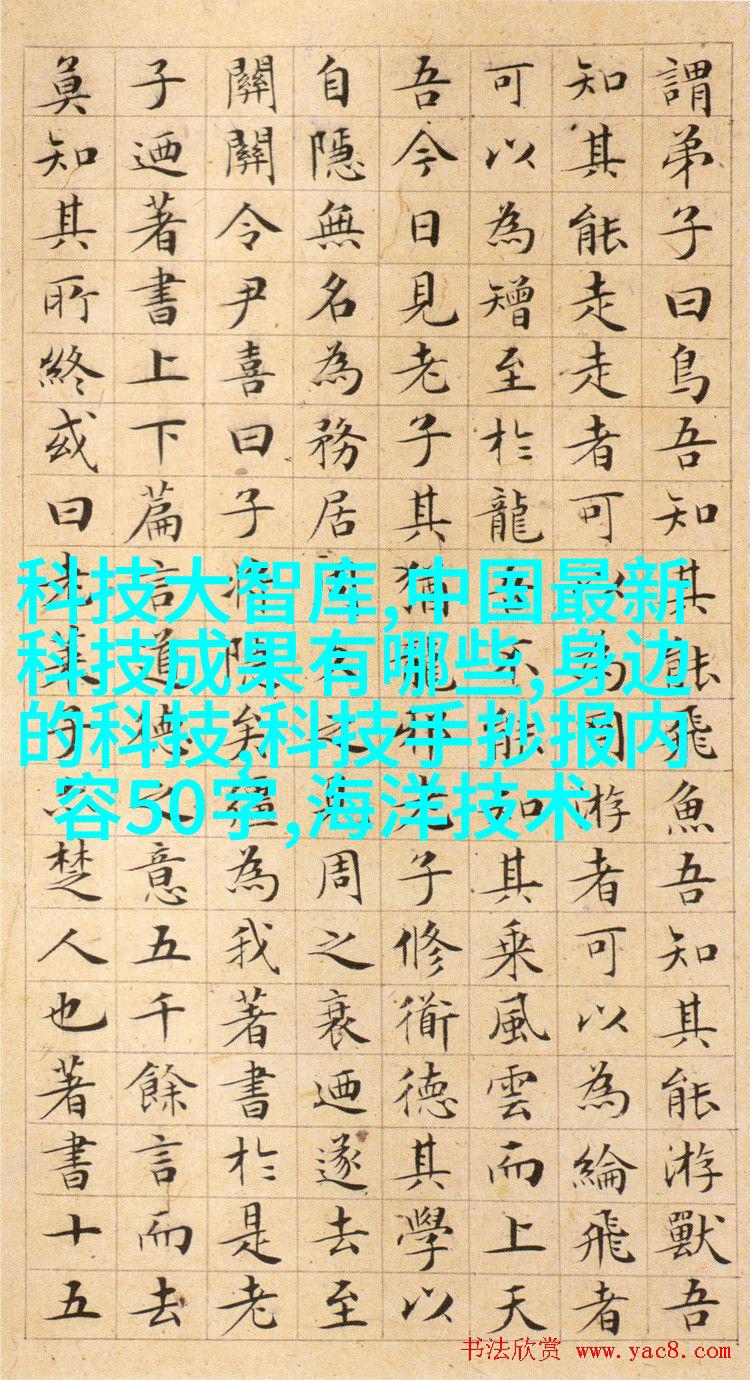 謂弟子曰鳥吾知其能飛魚吾知其能游獸吾
知其能走走者可以為罔游者可以為綸飛者
可以為矰至於龍吾不能知其乘風雲而上天
吾今日見老子其猶龍邪老子修衜德其學以
自隱無名為務居周久之見周之衰迺遂去至
關關令尹喜曰子將隱矣彊為我著書於是老
子迺著書上下篇言道德之意五千餘言而去
莫知其所終或曰老萊子亦楚人也著書十五
科技大智库,中国最新
科技成果有哪些,身边
的科技,科技手抄报内
容50字,海洋技术
书法欣赏 www.yac8.com